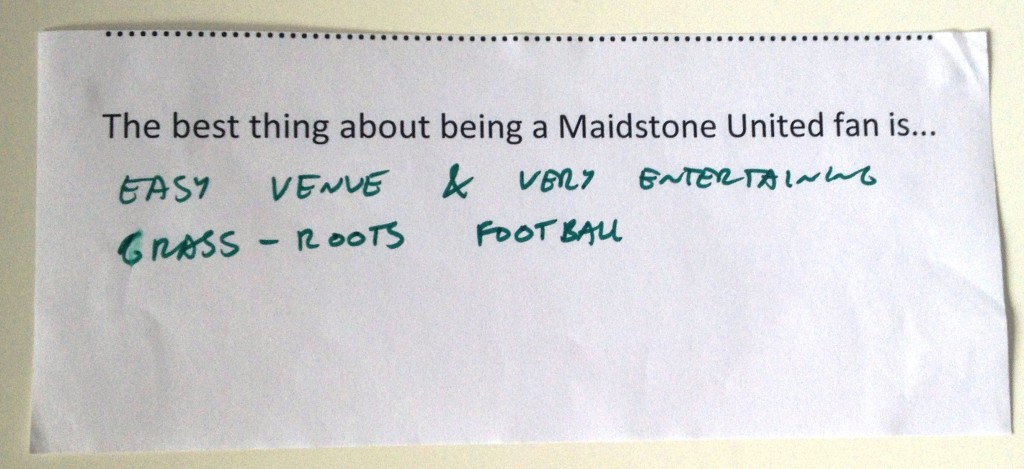 The best thing about being a Maidstone United fan is...
EASY VENUE & VERY ENTERTAINING
GRASS - ROOTS FOOTBALL